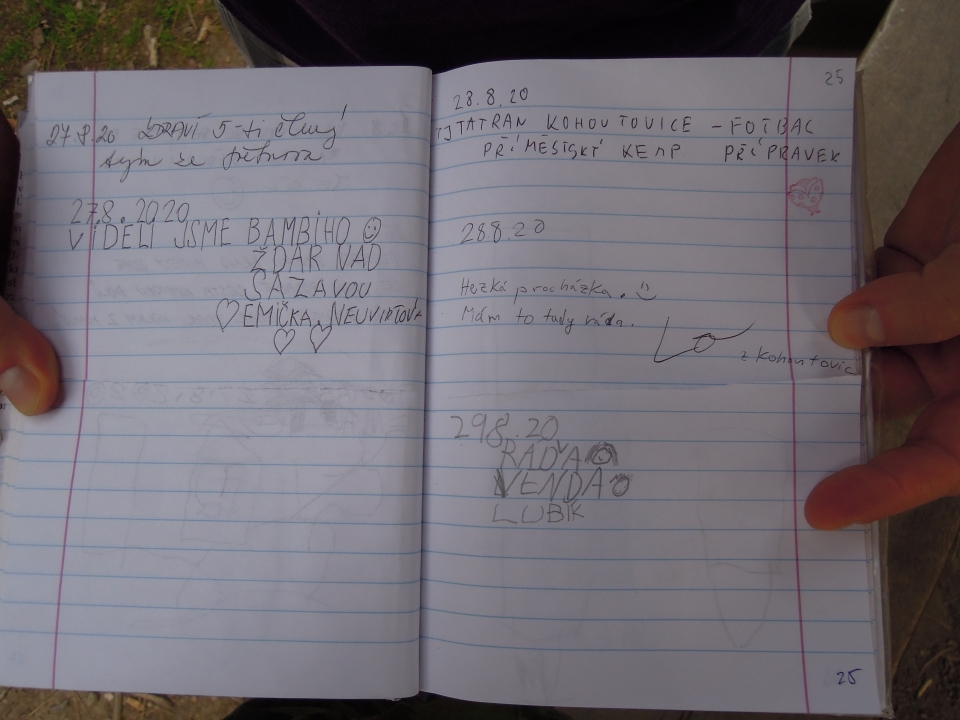 27.8.20 ZDRAVÍ 5-ti členný
tým se
27.8.2020
VIDĚLI JSME BAMBIHO
ŽDÁR NAD
SÁZAVOU
EMIČKA NEUVIRTOVÁ
25
28.8.20
TJ TATRAN KOHOUTOVICE - FOTBAL
PŘÍMĚSTSKÝ KEMP PŘÍPRAVEK
28.8.20
Hezká procházka.
Mám to tady ráda.
z Kohoutovic
29.8.20
RÁĎA
VENDA
LUBÍK
25